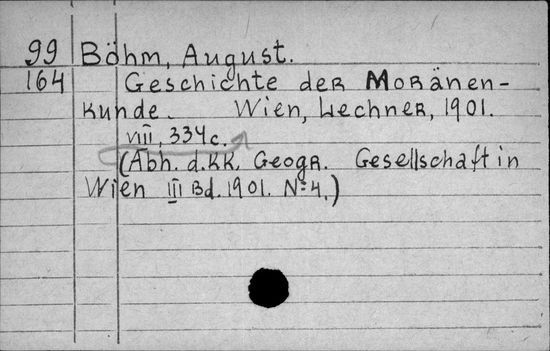 99 Böhm, August.
164 Geschichte der Moränen-
kunde. Wien, Lechner, 1901.
VIII, 334 c.
(Abh. d. KK. Geogr. Gesellschaft in
Wien III Bd. 1901. N=4.)